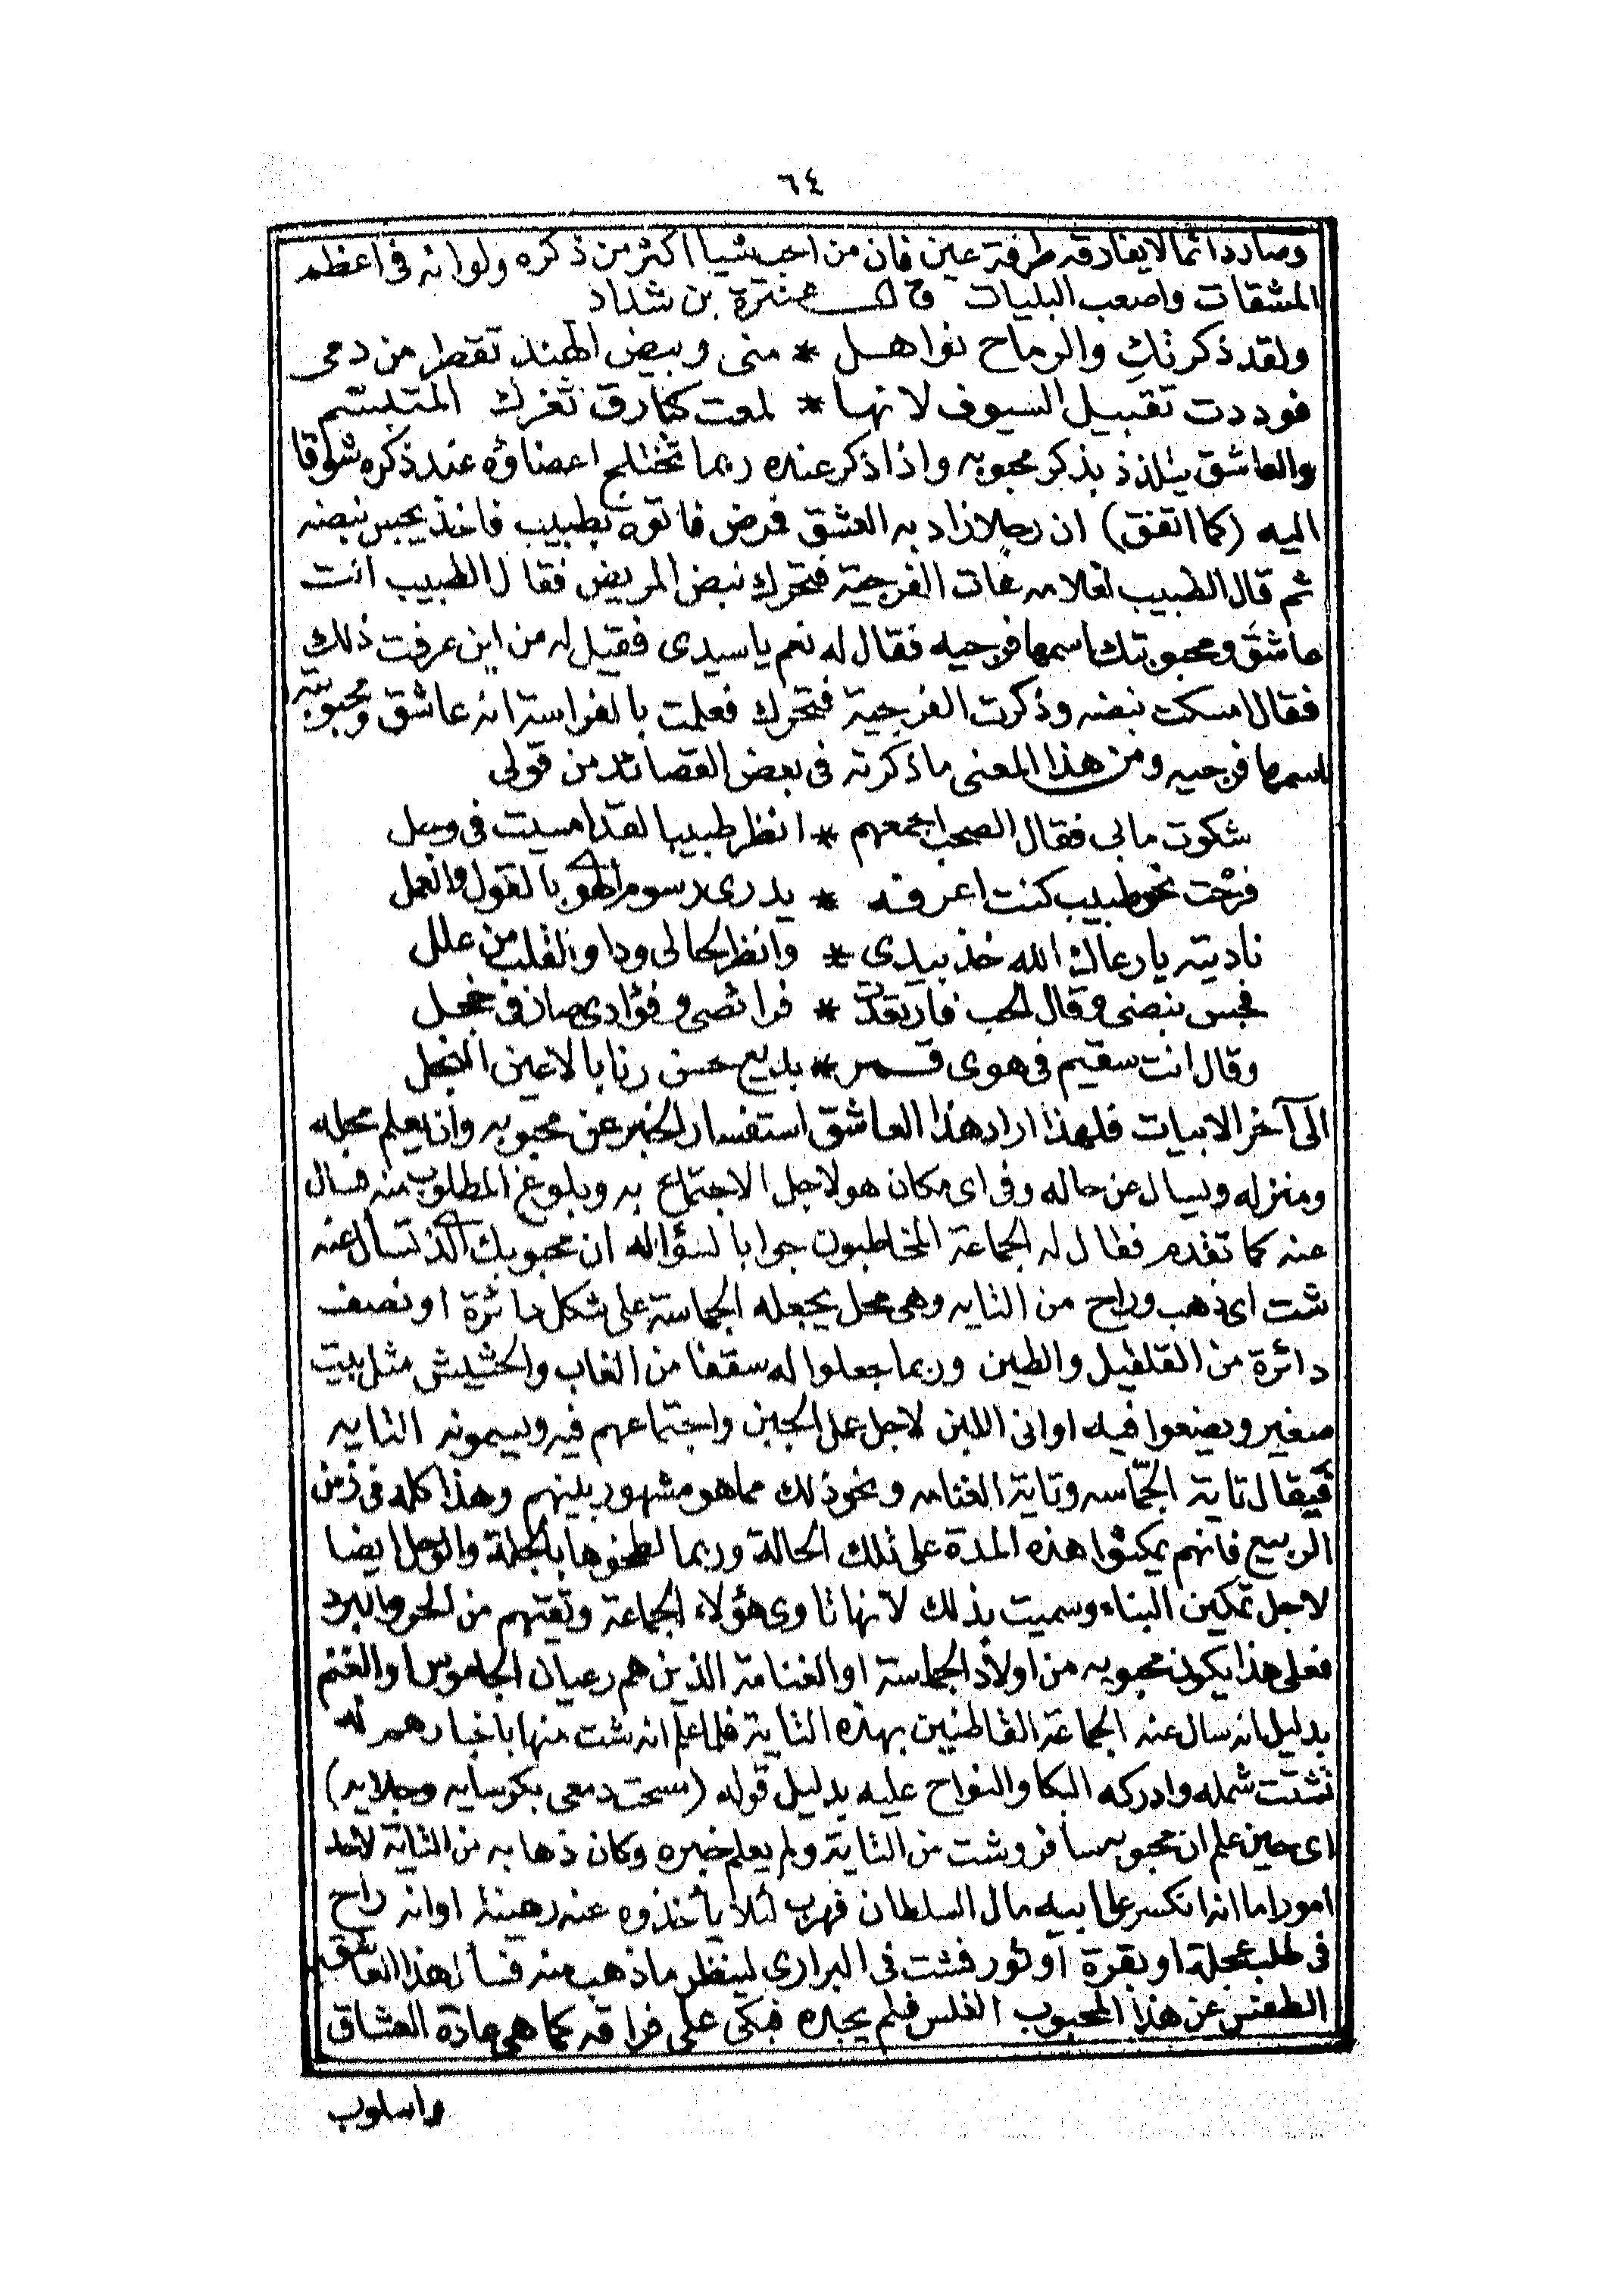 ٦٤
وصار دائما لا يفارقه طرفة عين فان من احب شيا اكثر من ذكره ولو انه فى اعظم
المشقات واصعب البليات قال عنترة بن شداد
ولقد ذكرتكِ والرماح نواهل * منى وبيض الهند تقطر من دمى
فوددت تقبيل السيوف لانها * لمعت كبارق ثغرك المتبسم
والعاشق يتلذذ بذكر محبوبه واذا ذكر عنده ربما تختلج اعضاؤه عند ذكره شوقا
اليه (كما اتفق) ان رجلا زاد به العشق فمرض فاتوه بطبيب فاخذ يجس نبضه
ثم قال الطبيب لغلامه هات الفرجية فتحرك نبض المريض فقال الطبيب انت
عاشق ومحبوبتك اسمها فرجيه فقال له نعم ياسيدى فقيل له من اين عرفت ذلك
فقال امسكت نبضه وذكرت الفرجية فتحرك فعلمت بالفراسة انه عاشق ومحبوبته
اسمها فرجيه ومن هذا المعنى ما ذكرته فى بعض القصائد من قولى
شكوت مابى فقال الصحب اجمعهم * انظر طبيبا لقد امسيت فى وجل
فرحت نحو طبيب كنت اعرفه * يدرى رسوم الهوى بالقول والعمل
ناديته يارعاك الله خذ بيدى * وانظر لحالى وداو القلب من علل
فجس نبضى وقال الحب فارتعدت * فرائصى وفؤادى صار فى خجل
وقال انت سقيم فى هوى قمر * بديع حسن رنا بالاعين النجل
الى آخر الابيات فلهذا اراد هذا العاشق استفسار الخبر عن محبوبه وان يعلم محله
ومنزله ويسال عن حاله وفى اى مكان هو لاجل الاجتماع به وبلوغ المطلوب منه فسال
عنه كما تقدم فقال له الجماعة المخاطبون جوابا لسؤاله ان محبوبك الذى تسأل عنه
شت اى ذهب وراح من التايه وهى محل يجعله الجماسة على شكل دائرة او نصف
دائرة من القلفيل والطين وربما جعلوا له سقفا من الغاب والحشيش مثل بيت
صغير ويضعوا فيه اوانى اللبن لاجل عمل الجبن واجتماعهم فيه ويسمونه التايه
فيقال تاية الجمّاسه وتاية الغنامه ونحو ذلك مما هو مشهور بينهم وهذا كله فى زمن
الربيع فانهم يمكثوا هذه المدة على تلك الحالة وربما لطخوها بالجلة والوحل ايضا
لاجل تمكين البناء وسميت بذلك لانها تاوى هؤلاء الجماعة وتقتهم من الحر والبرد
فعلى هذا يكون محبوبه من اولاد الجماسة او الغنامة الذين هم رعيان الجاموس او الغنم
بدليل انه سال عنه الجماعة القاطنين بهذه التاية فلما علم انه شت منها باخبارهم له
تشتت شمله وادركه البكا والنواح عليه بدليل قوله (سحت دمعى بكرسايه وجلايه)
اى حين علم ان محبوبه سافر وشت من التاية ولم يعلم خبره وكان ذهابه من التاية لاحد
امور اما انه انكسر على ابيه مال السلطان فهرب لئلا يأخذوه عنه رهينة او انه راح
فى طلب عجلة او بقرة او ثور فشت فى البرارى لينظر ماذهب منه فسأل هذا العاشق
الطعس عن هذا المحبوب الفلس فلم يجده فبكى على فراقه كما هى عادة العشاق
واسلوب